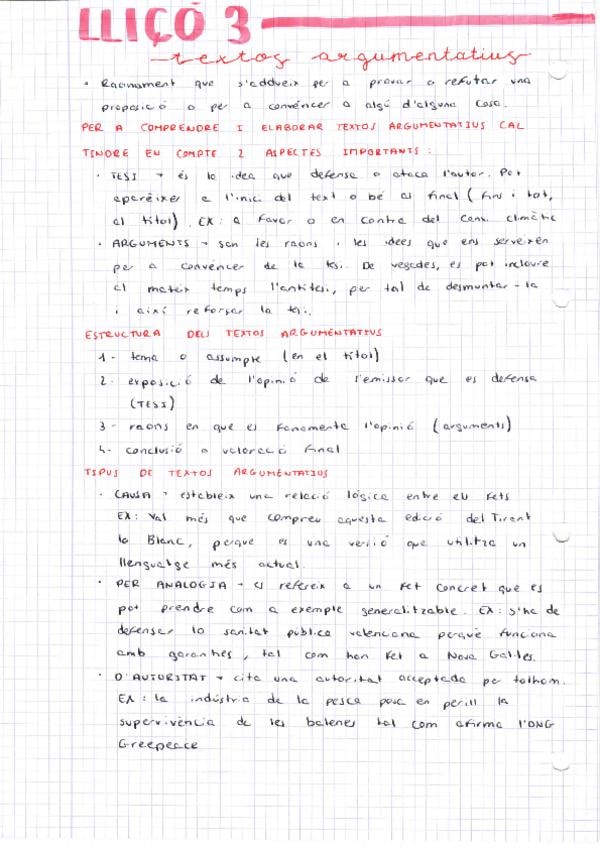 LLIÇÓ 3
textos argumentatius
· Raonament que s'addueix per a provar o refutar una
proposició o per a convéncer a algú d'alguna cosa.
PER A COMPRENDRE I ELABORAR TEXTOS ARGUMENTATIUS CAL
TINDRE EN COMPTE 2 ASPECTES IMPORTANTS:
· TESI → és la idea que defensa o ataca l'autor. Pot
aparéixer a l'inici del text o bé al final (fins i tot,
al títol). EX: a favor o en contra del canvi climàtic
· ARGUMENTS → son les raons i les idees que ens serveixen
per a convéncer de la tesi. De vegades, es pot incloure
al mateix temps l'antítesi, per tal de desmuntar-la
i així reforçar la tesi.
ESTRUCTURA DELS TEXTOS ARGUMENTATIUS
1- tema o assumpte (en el títol)
2- exposició de l'opinió de l'emissor que es defensa
(TESI)
3- raons en que es fonamenta l'opinió (arguments)
4- conclusió o valoració final
TIPUS DE TEXTOS ARGUMENTATIUS
· CAUSA → estableix una relació lògica entre els fets
EX: Val més que compreu aquesta edició del Tirant
lo Blanc, perque es una versió que utilitza un
llenguatge més actual.
· PER ANALOGIA → es refereix a un fet concret que es
pot prendre com a exemple generalitzable. EX: s'ha de
defensar la sanitat pública valenciana perquè funciona
amb garanties, tal com han fet a Nova Gal·les.
· D'AUTORITAT → cita una autoritat acceptada per tothom.
EX: la indústria de la pesca posa en perill la
supervivència de les balenes tal com afirma l'ONG
Greepeace